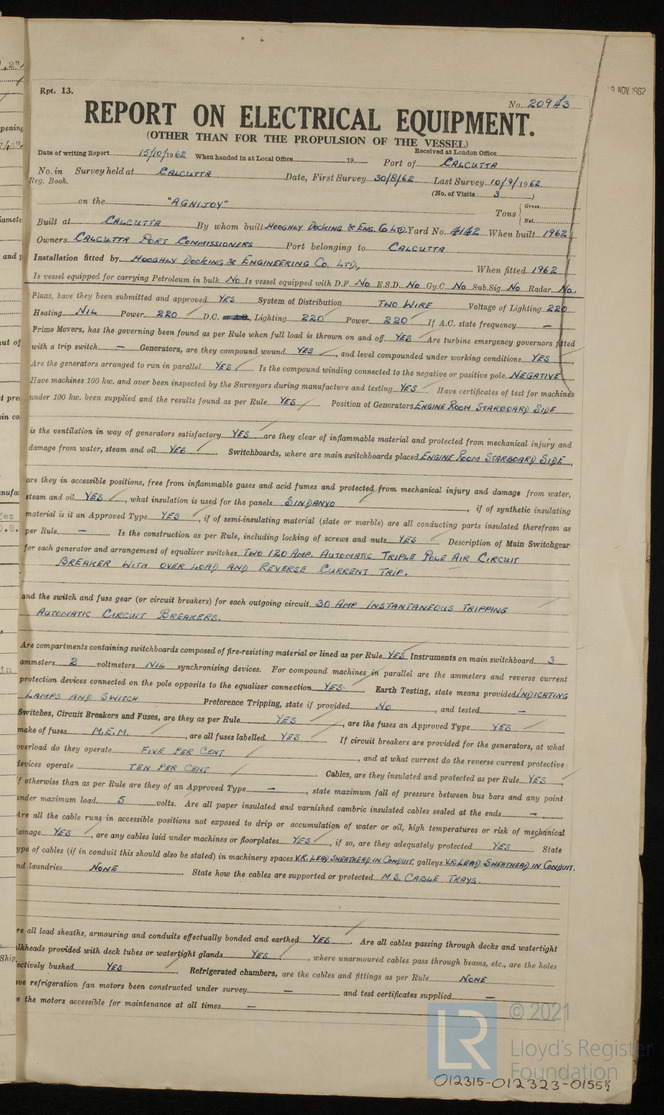 Rpt. 13.
9 NOV 1962
No. 20943
REPORT ON ELECTRICAL EQUIPMENT.
(OTHER THAN FOR THE PROPULSION OF THE VESSEL)
Date of writing Report 15/10/1962 When handed in at Local Office 19 Port of CALCUTTA Received at London Office
No. in Reg. Book. Survey held at CALCUTTA Date, First Survey 30/8/62 Last Survey 10/9/1962
(No. of Visits 3)
on the "AGNIJOY" Tons Gross Net
Built at CALCUTTA By whom built HOOGHLY DOCKING & ENG. CO LTD. Yard No. 4142 When built 1962
Owners CALCUTTA PORT COMMISSIONERS Port belonging to CALCUTTA
Installation fitted by HOOGHLY DOCKING & ENGINEERING CO. LTD, When fitted 1962
Is vessel equipped for carrying Petroleum in bulk NO Is vessel equipped with D.F. NO E.S.D. NO Gy.C. NO Sub.Sig. NO Radar NO.
Plans, have they been submitted and approved YES System of Distribution TWO WIRE Voltage of Lighting 220
Heating NIL Power 220 D.C. Lighting 220 Power 220 If A.C. state frequency —
Prime Movers, has the governing been found as per Rule when full load is thrown on and off YES Are turbine emergency governors fitted
with a trip switch — Generators, are they compound wound YES, and level compounded under working conditions YES
Are the generators arranged to run in parallel YES Is the compound winding connected to the negative or positive pole NEGATIVE
Have machines 100 kw. and over been inspected by the Surveyors during manufacture and testing YES Have certificates of test for machines
under 100 kw. been supplied and the results found as per Rule YES Position of Generators ENGINE ROOM STARBOARD SIDE
is the ventilation in way of generators satisfactory YES are they clear of inflammable material and protected from mechanical injury and
damage from water, steam and oil YES Switchboards, where are main switchboards placed ENGINE ROOM STARBOARD SIDE,
are they in accessible positions, free from inflammable gases and acid fumes and protected from mechanical injury and damage from water,
steam and oil YES, what insulation is used for the panels SINDANYO, if of synthetic insulating
material is it an Approved Type YES, if of semi-insulating material (slate or marble) are all conducting parts insulated therefrom as
per Rule — Is the construction as per Rule, including locking of screws and nuts YES Description of Main Switchgear
for each generator and arrangement of equaliser switches TWO 120 AMP. AUTOMATIC TRIPLE POLE AIR CIRCUIT
BREAKER WITH OVER LOAD AND REVERSE CURRENT TRIP.
and the switch and fuse gear (or circuit breakers) for each outgoing circuit 30 AMP INSTANTANEOUS TRIPPING
AUTOMATIC CIRCUIT BREAKERS.
Are compartments containing switchboards composed of fire-resisting material or lined as per Rule YES Instruments on main switchboard 3
ammeters 2 voltmeters NIL synchronising devices. For compound machines in parallel are the ammeters and reverse current
protection devices connected on the pole opposite to the equaliser connection YES Earth Testing, state means provided INDICATING
LAMPS AND SWITCH Preference Tripping, state if provided NO, and tested —
Switches, Circuit Breakers and Fuses, are they as per Rule YES, are the fuses an Approved Type YES
make of fuses M.E.M., are all fuses labelled YES If circuit breakers are provided for the generators, at what
overload do they operate FIVE PER CENT, and at what current do the reverse current protective
devices operate TEN PER CENT Cables, are they insulated and protected as per Rule YES
if otherwise than as per Rule are they of an Approved Type —, state maximum fall of pressure between bus bars and any point
under maximum load 5 volts. Are all paper insulated and varnished cambric insulated cables sealed at the ends —
Are all the cable runs in accessible positions not exposed to drip or accumulation of water or oil, high temperatures or risk of mechanical
damage YES, are any cables laid under machines or floorplates YES, if so, are they adequately protected YES State
type of cables (if in conduit this should also be stated) in machinery spaces V.R. LEAD SHEATHED IN CONDUIT, galleys V.R. LEAD SHEATHED IN CONDUIT.
nd laundries NONE State how the cables are supported or protected M.S. CABLE TRAYS.
re all lead sheaths, armouring and conduits effectually bonded and earthed YES. Are all cables passing through decks and watertight
ulkheads provided with deck tubes or watertight glands YES, where unarmoured cables pass through beams, etc., are the holes
ectively bushed YES Refrigerated chambers, are the cables and fittings as per Rule NONE
ve refrigeration fan motors been constructed under survey — and test certificates supplied —
e the motors accessible for maintenance at all times —
© 2021
LR
Lloyd's Register
Foundation
012315-012323-0155½